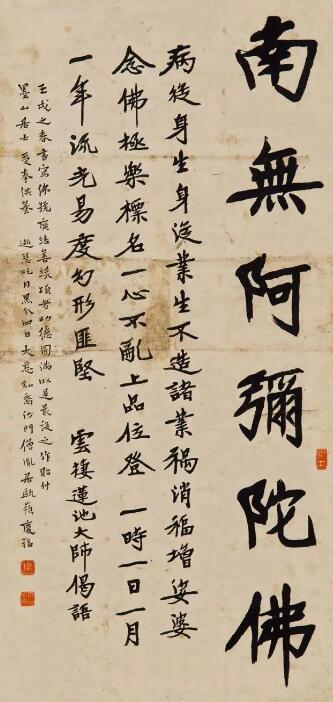 南無阿彌陀佛
病從身生身從業生不造諸業禍消福增娑婆
念佛極樂標名一心不亂上品位登 一時一日一月
一年流光易度幻形匪堅 雲棲蓮池大師偈語
壬戌之春書寫佛號廣結善緣頃者功德圓滿以是最後之作貽付
墨山居士 受奉供養 月黑分四日 大慈 沙門僧胤居甌嶺慶福